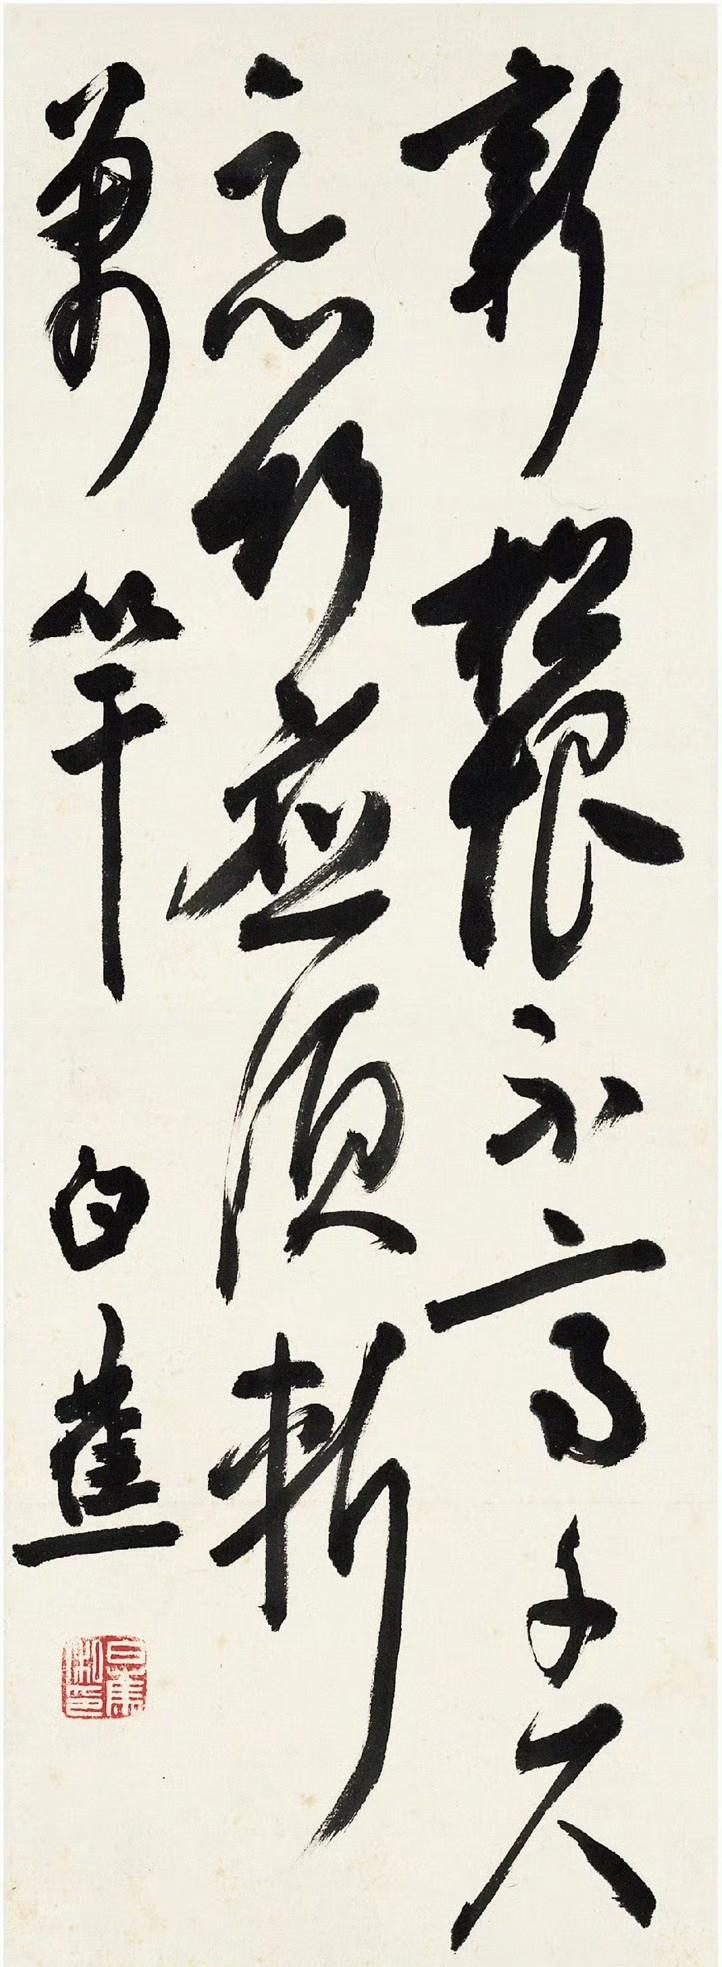 新松恨不高千尺
惡竹應須斬
萬竿 白蕉
白蕉私印